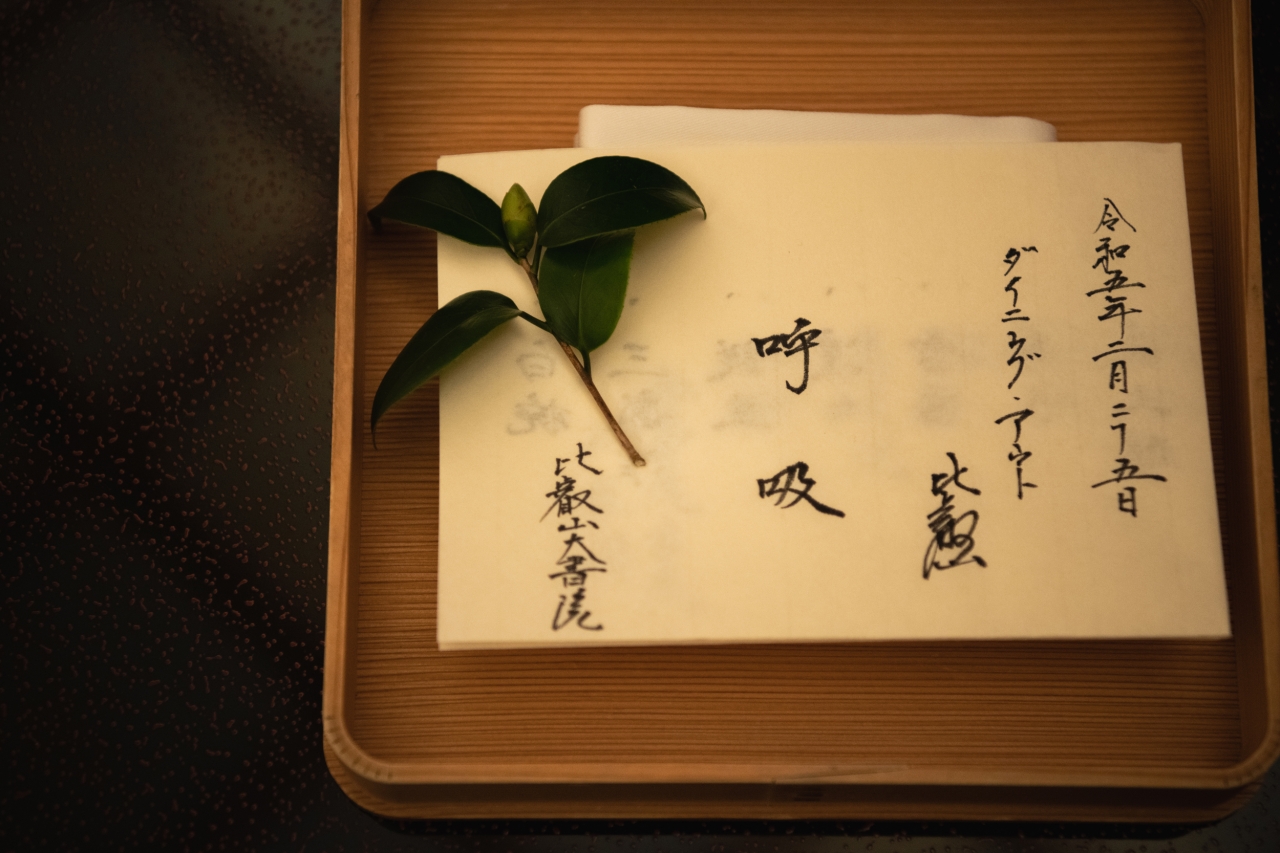 令和五年二月二十五日
ダイニング・アウト
比叡
呼吸
比叡山大書院